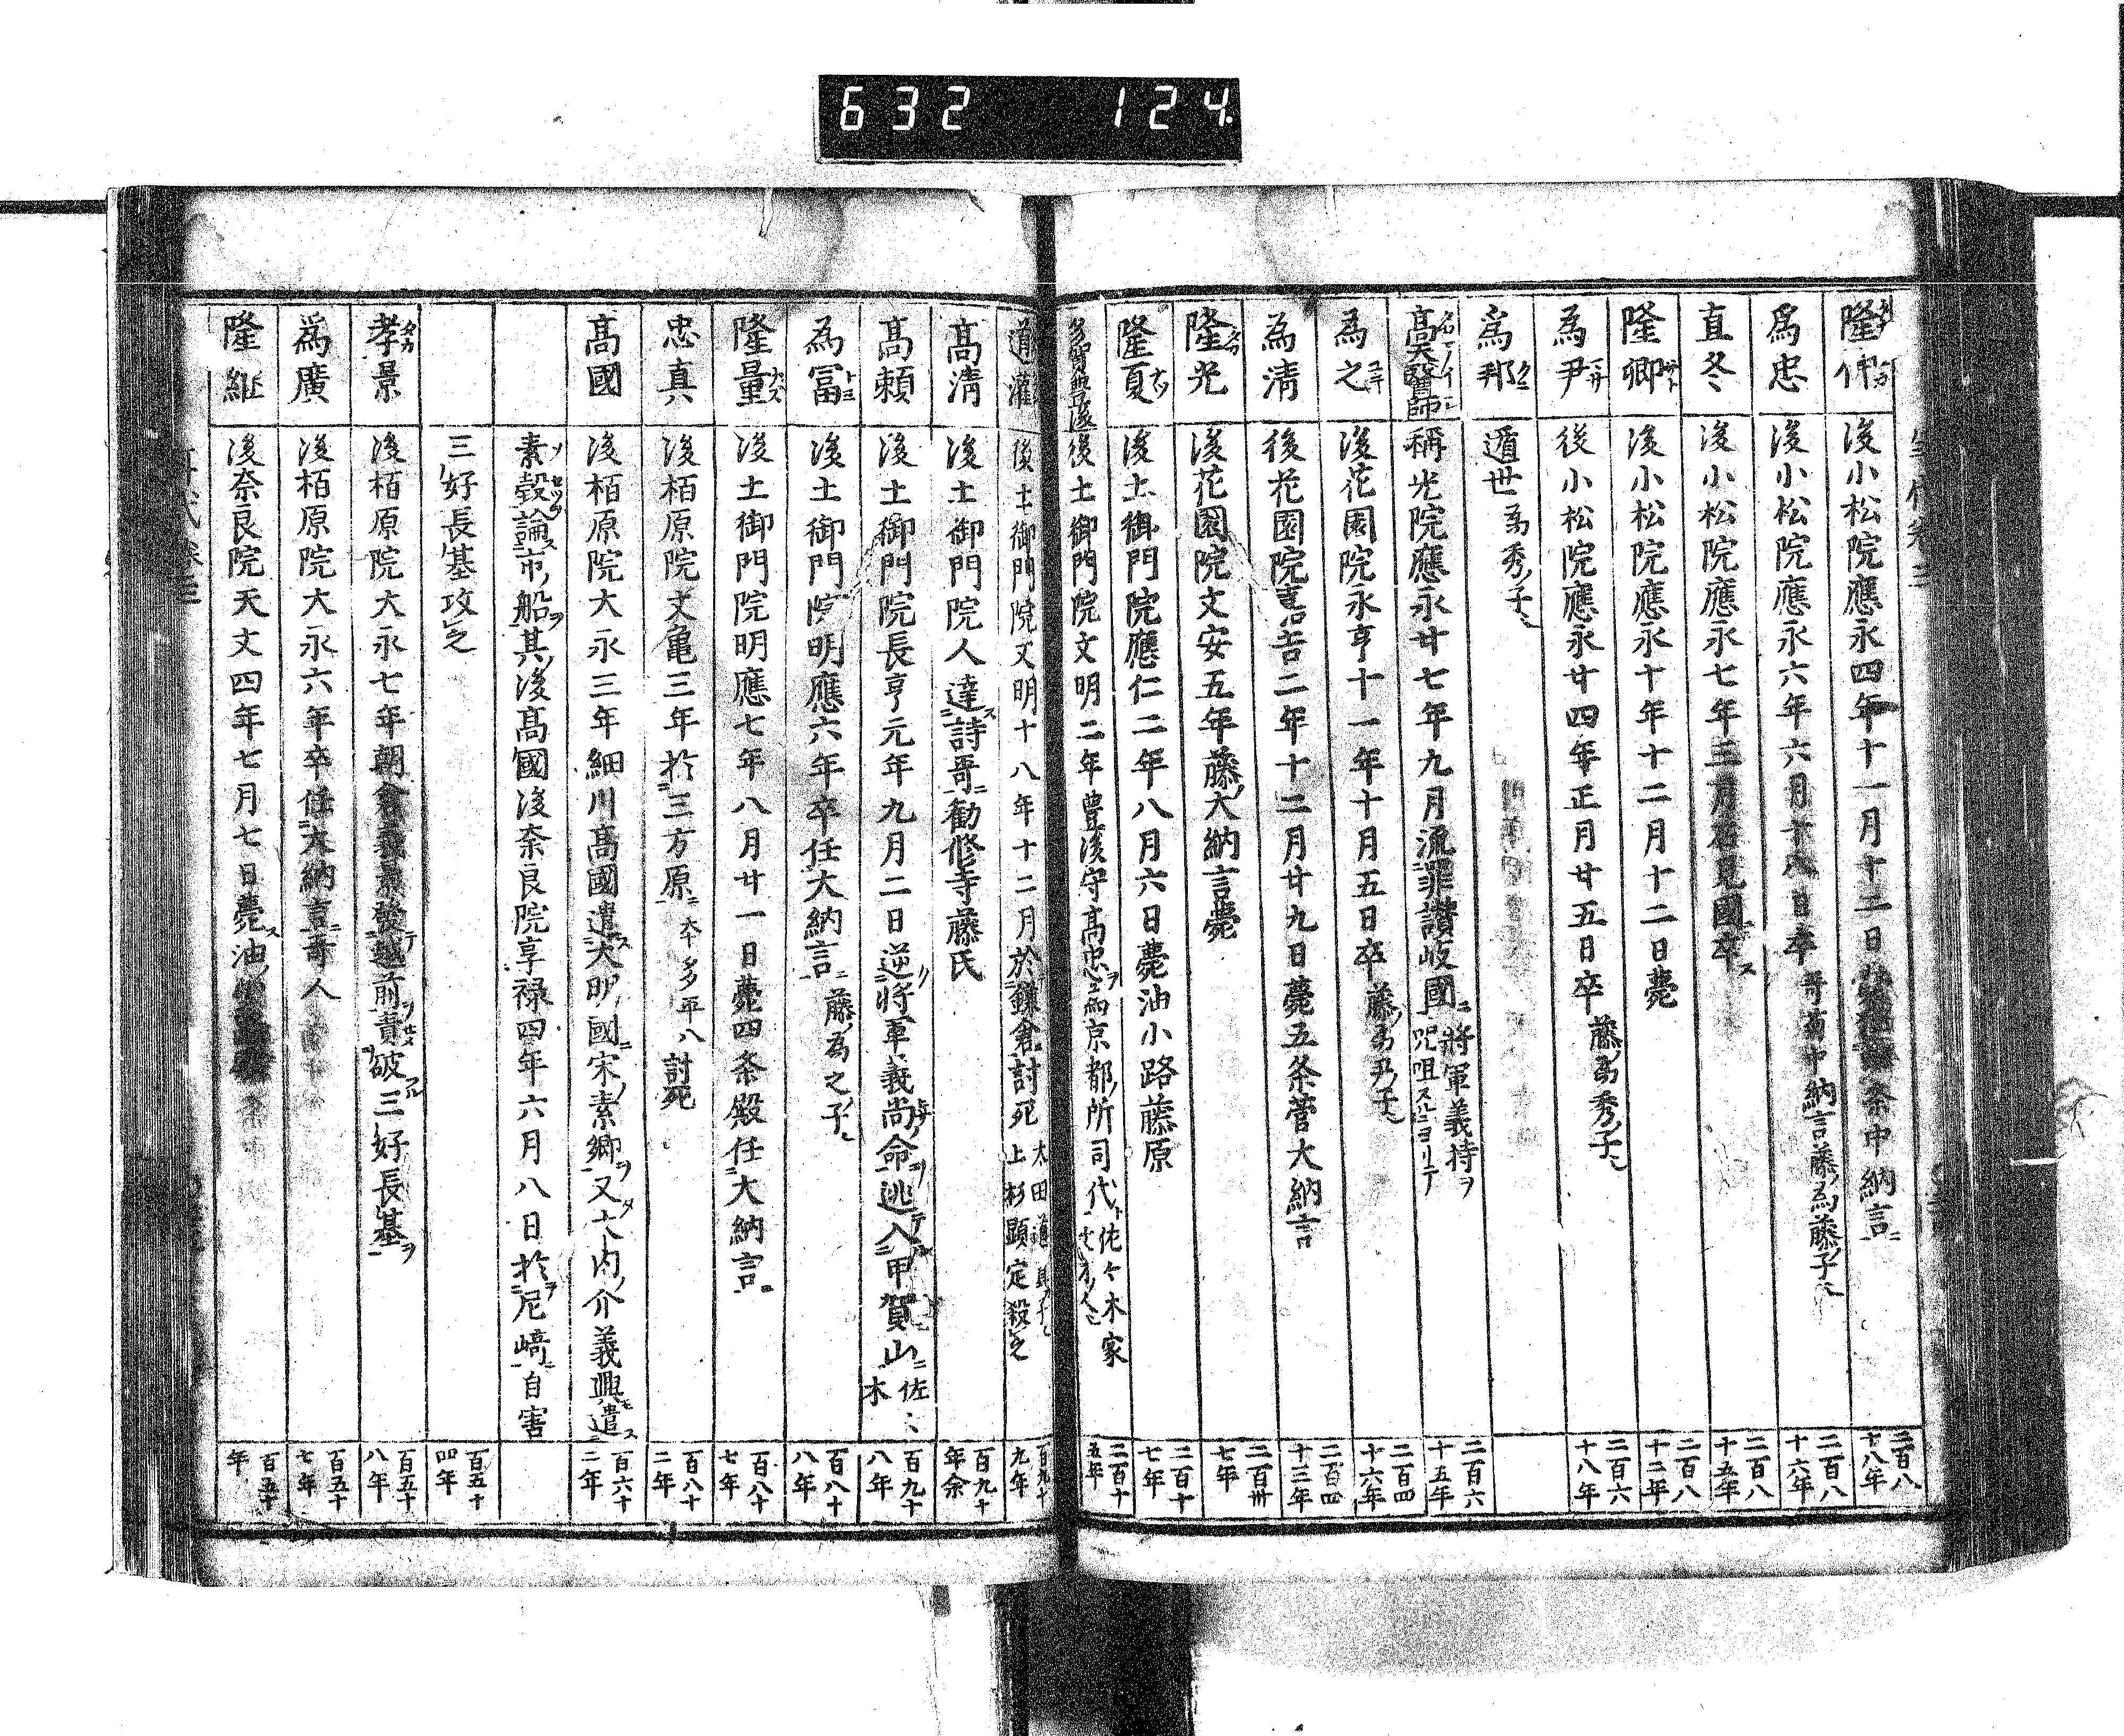 632 124.
隆仲 後小松院應永四年十一月十二日 条中納言ニ 二百八十八年
為忠 後小松院應永六年六月十八日卒 哥菊中納言藤為藤子 二百八十六年
直冬 後小松院應永七年三月石見國ニ卒ス 二百八十五年
隆卿 後小松院應永十年十二月十二日薨 二百八十二年
為尹 後小松院應永廿四年正月廿五日卒 藤為秀ノ子 二百六十八年
為邦 遁世 為秀ノ子
高天醫師 稱光院應永廿七年九月流罪讃岐國ニ 將軍義持ヲ咒咀スルニヨリテ 二百六十五年
為之 後花園院永享十一年十月五日卒 藤為尹ノ子 二百四十六年
為清 後花園院嘉吉二年十二月廿九日薨五条菅大納言 二百四十三年
隆光 後花園院文安五年藤大納言薨 二百卅七年
隆夏 後土御門院應仁二年八月六日薨油小路藤原 二百十七年
多賀豊後 後土御門院文明二年豊後守高忠ヲ為京都ノ所司代ト 佐々木家 二百十五年
道灌 後土御門院文明十八年十二月於鎌倉討死 太田道 上杉顕定殺之 百九十九年
高清 後土御門院人達ス詩哥ニ勧修寺藤氏 百九十年余
高頼 後土御門院長享元年九月二日逆將軍義尚命逃入甲賀山ニ 佐々木 百九十八年
為冨 後土御門院明應六年卒任大納言ニ 藤為之ノ子 百八十八年
隆量 後土御門院明應七年八月廿一日薨四条殿任大納言ニ 百八十七年
忠真 後柏原院文亀三年於三方原ニ 本多平八討死 百八十二年
高國 後柏原院大永三年細川高國遣ス大明國ニ宋素卿ヲ又大内ノ介義興遣ス 百六十二年
素毅論ス市船ヲ其ノ後高國後奈良院享禄四年六月八日於尼﨑ニ自害
三好長基攻之 百五十四年
孝景 後柏原院大永七年朝倉義景發越前責破三好長基ヲ 百五十八年
為廣 後柏原院大永六年卒任大納言ニ哥人 百五十七年
隆継 後奈良院天文四年七月七日薨ス油 百五十年